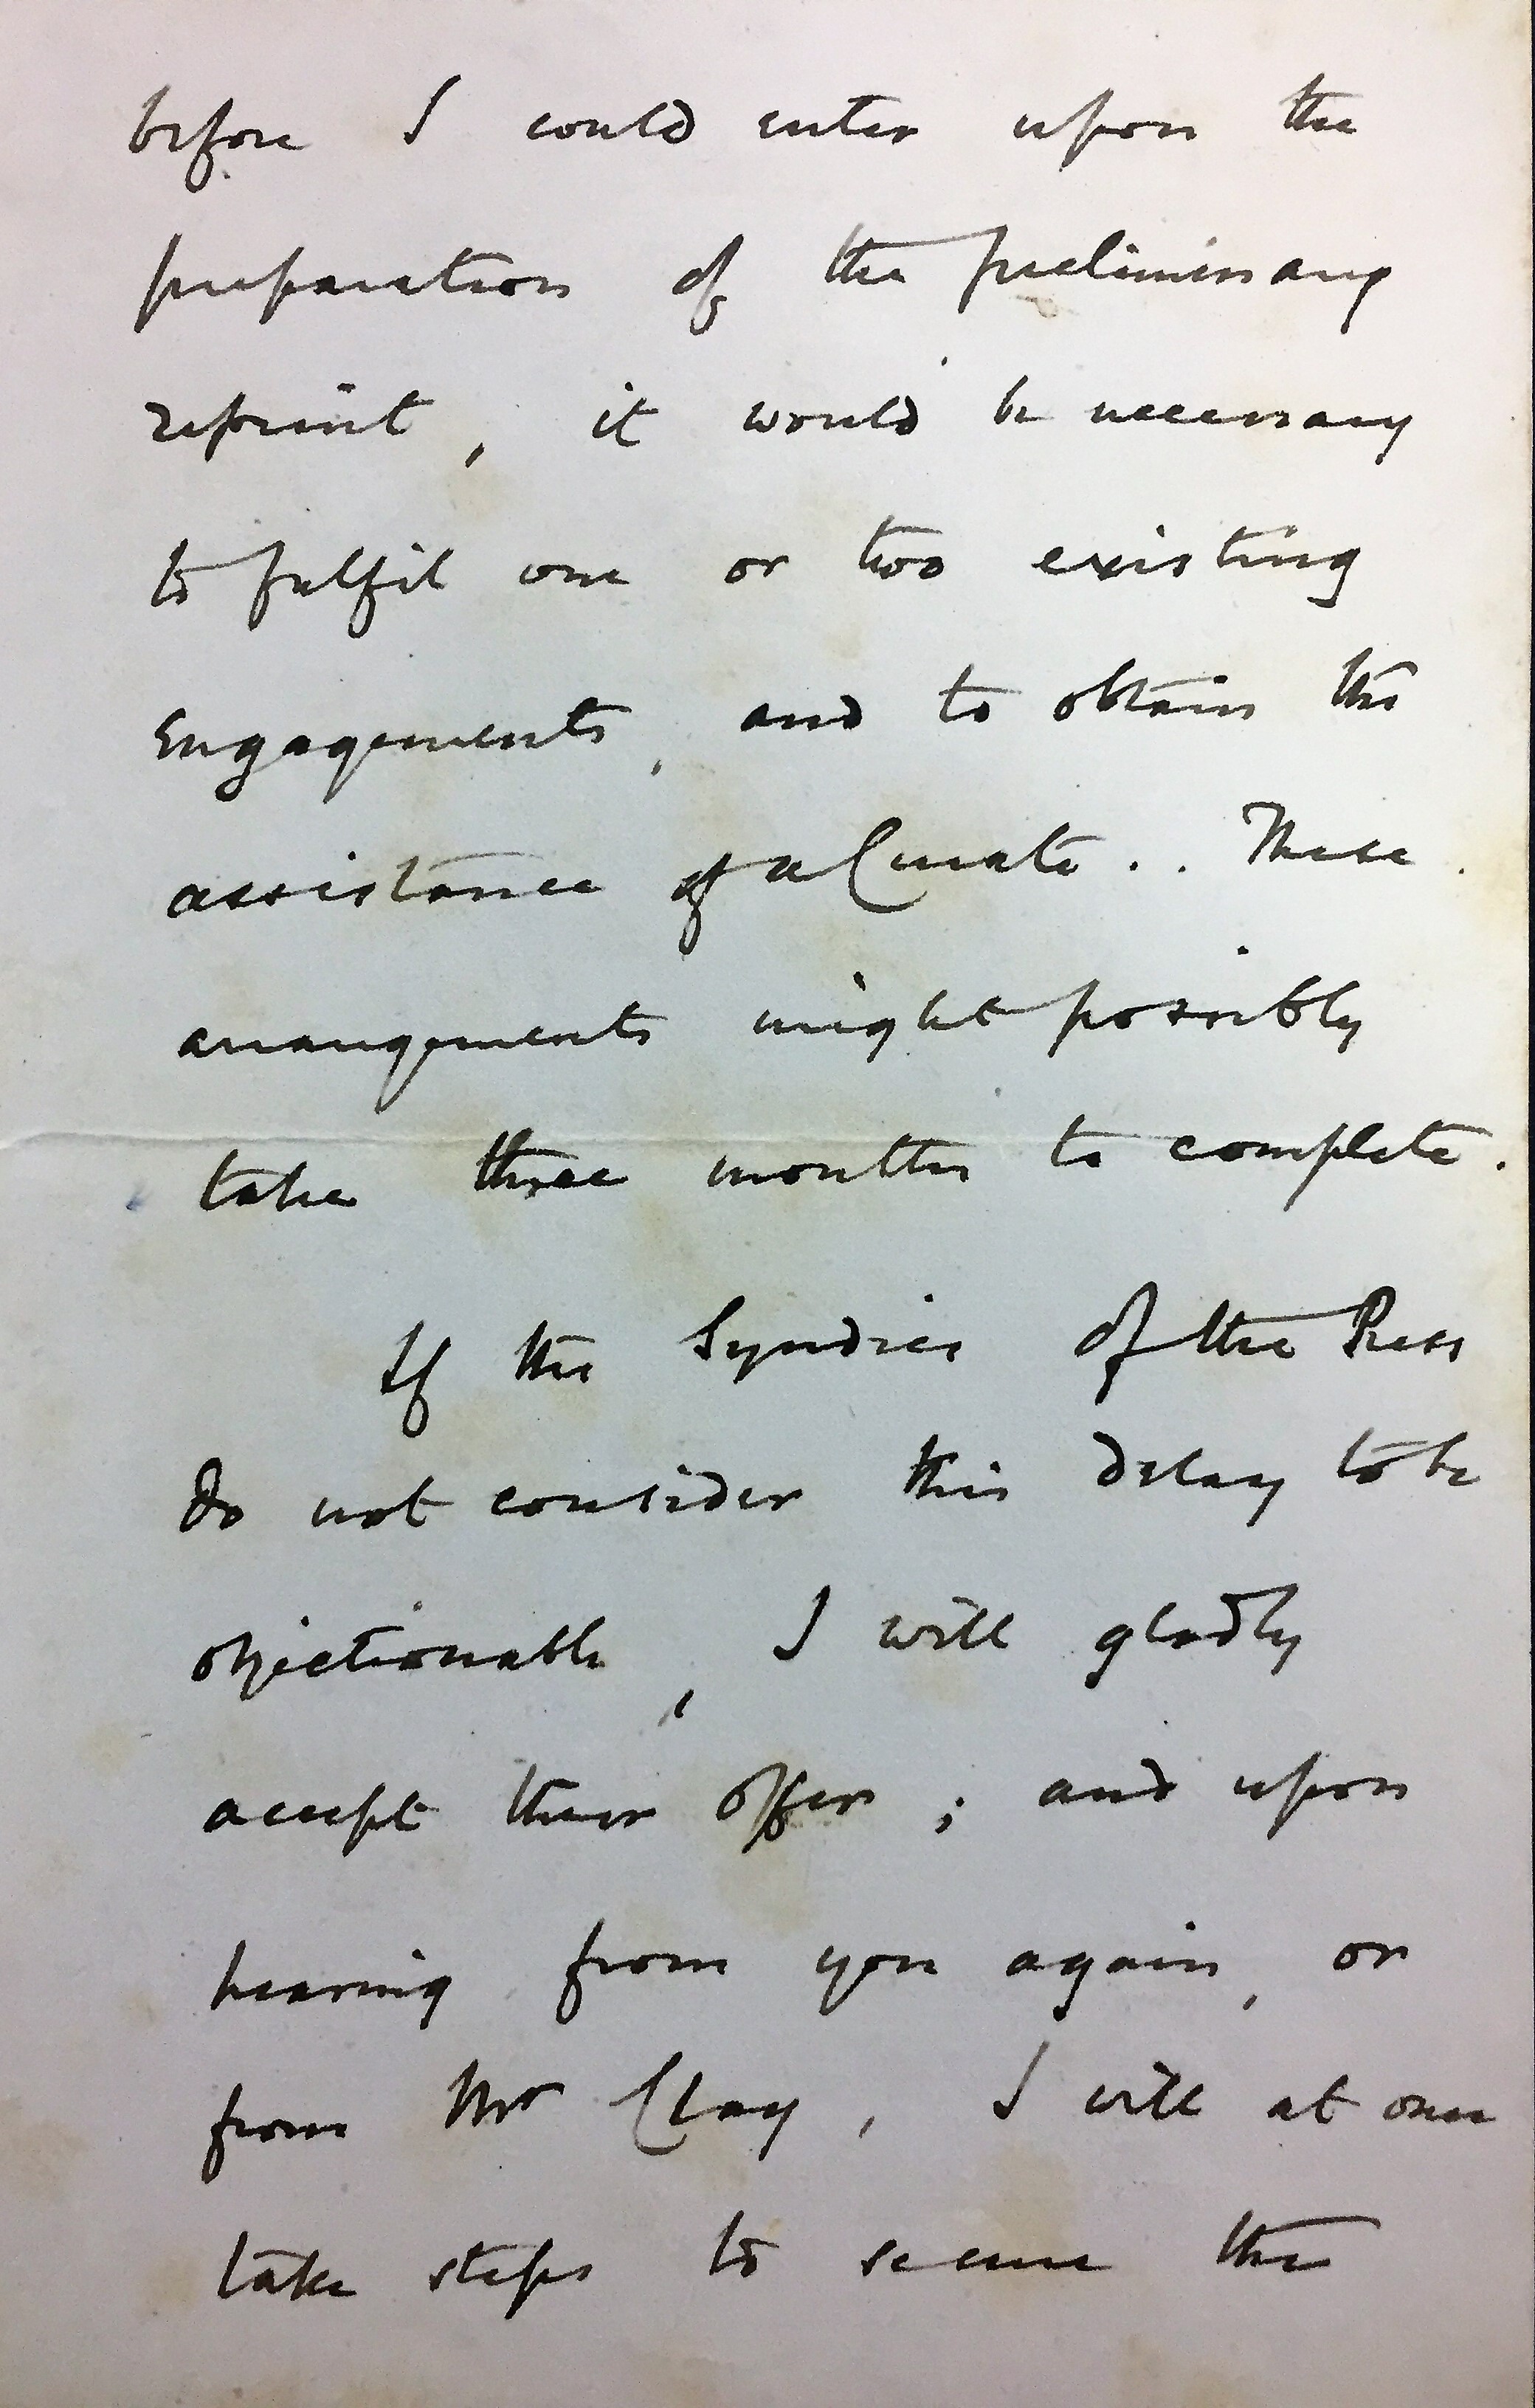 before I could enter upon the
preparation of the preliminary
reprint, it would be necessary
to fulfil one or two existing
engagements, and to obtain the
assistance of a Curate.. These
arrangements might possibly
take three months to complete.
If the Syndics of the Press
do not consider this delay to be
objectionable, I will gladly
accept their offer; and upon
hearing from you again, or
from Mr Clay, I will at once
take steps to secure the